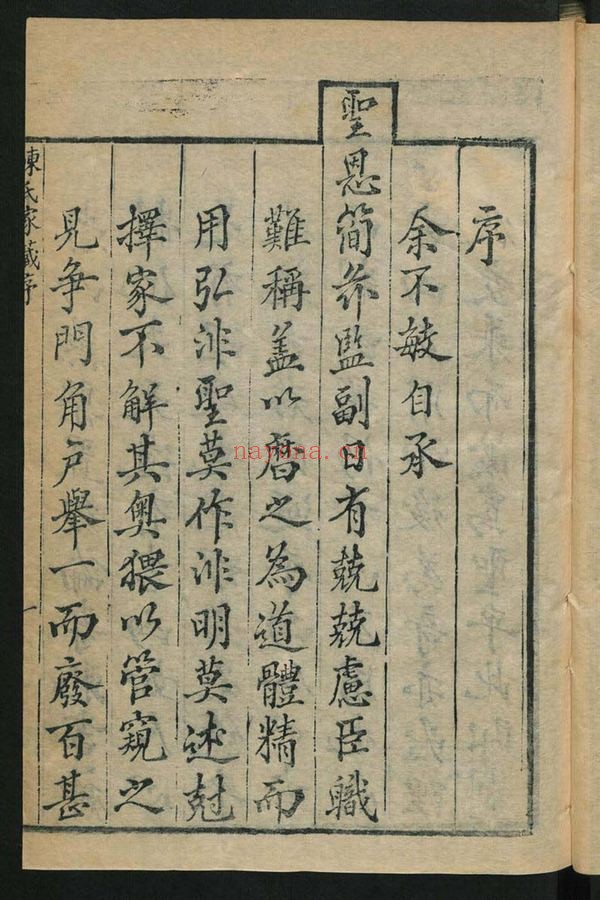 序
余不敏自承
聖恩簡命監副日有兢兢慮臣職
難稱蓋以曆之為道體精而
用弘非聖莫作非明莫述尅
擇家不解其奧猥以管窺之
見爭門角户舉一而廢百甚
陳氏家藏序
一
nayona.cn